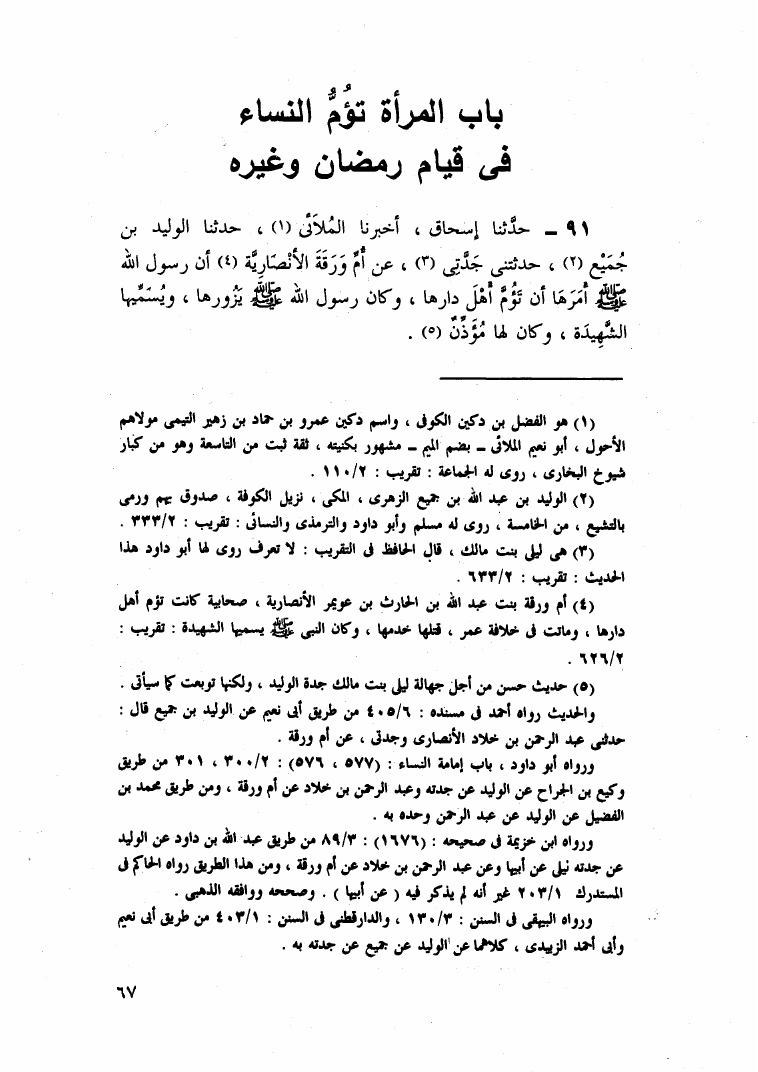 باب المرأة تؤُمُّ النساء
فى قيام رمضان وغيره
٩١ ــ حدَّثنا إسحاق ، أخبرنا المُلاَئى (١) ، حدثنا الوليد بن
جُمَيْع (٢) ، حدثتنى جَدَّتِى (٣) ، عن أُمِّ وَرَقَةَ الأنْصَارِيَّة (٤) أن رسول الله
ﷺ أمَرَهَا أن تَؤُمَّ أهْلَ دارها ، وكان رسول الله ﷺ يَزُورها ، ويُسَمِّيها
الشَّهِيدَة ، وكان لها مُؤَذِّنٌ (٥) .
(١) هو الفضل بن دكين الكوفى ، واسم دكين عمرو بن حماد بن زهير التيمى مولاهم
الأحول ، أبو نعيم الملائى ــ بضم الميم ــ مشهور بكنيته ، ثقة ثبت من التاسعة وهو من كبار
شيوخ البخارى ، روى له الجماعة : تقريب : ١١٠/٢ .
(٢) الوليد بن عبد الله بن جميع الزهرى ، المكى ، نزيل الكوفة ، صدوق يهم ورمى
بالتشيع ، من الخامسة ، روى له مسلم وأبو داود والترمذى والنسائى : تقريب : ٣٣٣/٢ .
(٣) هى ليلى بنت مالك ، قال الحافظ فى التقريب : لا تعرف روى لها أبو داود هذا
الحديث : تقريب : ٦٣٣/٢ .
(٤) أم ورقة بنت عبد الله بن الحارث بن عويمر الأنصارية ، صحابية كانت تؤم أهل
دارها ، وماتت فى خلافة عمر ، قتلها خدمها ، وكان النبى ﷺ يسميها الشهيدة : تقريب :
٦٢٦/٢ .
(٥) حديث حسن من أجل جهالة ليلى بنت مالك جدة الوليد ، ولكنها توبعت كما سيأتى .
والحديث رواه أحمد فى مسنده : ٤٠٥/٦ من طريق أبى نعيم عن الوليد بن جميع قال :
حدثنى عبد الرحمن بن خلاد الأنصارى وجدتى ، عن أم ورقة .
ورواه أبو داود ، باب إمامة النساء : (٥٧٧ ، ٥٧٦) : ٣٠٠/٢ ، ٣٠١ من طريق
وكيع بن الجراح عن الوليد عن جدته وعبد الرحمن بن خلاد عن أم ورقة ، ومن طريق محمد بن
الفضيل عن الوليد عن عبد الرحمن وحده به .
ورواه ابن خزيمة فى صحيحه : (١٦٧٦) : ٨٩/٣ من طريق عبد الله بن داود عن الوليد
عن جدته نيلى عن أبيها وعن عبد الرحمن بن خلاد عن أم ورقة ، ومن هذا الطريق رواه الحاكم فى
المستدرك ٢٠٣/١ غير أنه لم يذكر فيه ( عن أبيها ) . وصححه ووافقه الذهبى .
ورواه البيهقى فى السنن : ١٣٠/٣ ، والدارقطنى فى السنن : ٤٠٣/١ من طريق أبى نعيم
وأبى أحمد الزبيدى ، كلاهما عن الوليد عن جميع عن جدته به .
٦٧